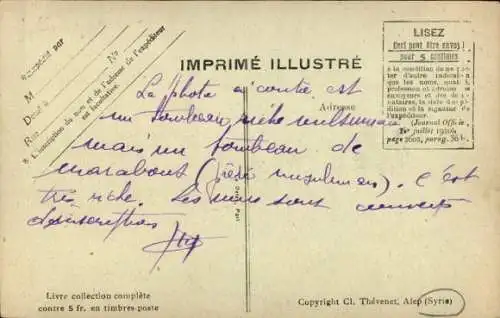 Envoyé par
M
Demeurant
Rue
N°
L'inscription du nom et de l'adresse de l'expéditeur
est facultative.
IMPRIMÉ ILLUSTRÉ
Adresse
LISEZ
Ceci peut être envoyé
pour 5 centimes
à la condition de ne por-
ter d'autre indication
que les nom,
profession et adresse des
envoyeurs et des desti-
nataires, la date d'expé-
dition et la signature de
l'expéditeur.
(Journal Offic. le
1er juillet 1920,
page 2002, parag. 36)
La photo ci contre est
un tombeau riche musulman
mais un tombeau de
marabout (prêtre musulman). C'est
très riche. Les murs sont couverts
d'inscriptions
Livre collection complète
contre 5 fr. en timbres-poste
Copyright Cl. Thévenet, Alep (Syrie)